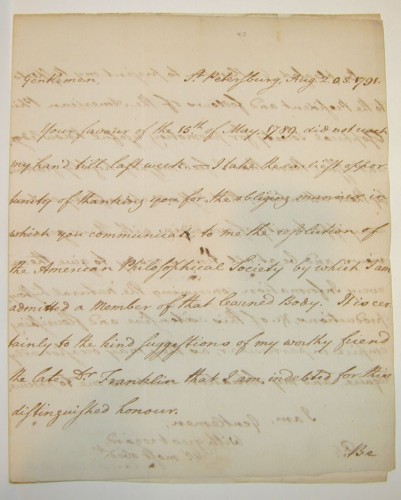 Gentlemen, St. Petersburg, Aug. 20.s. 1791.
Your favour of the 15th of May, 1789, did not reach
my hand till last week. — I take the earliest oppor
tunity of thanking you for the obliging manner in
which you communicate to me the resolution of
the American Philosophical Society by which I am
admitted a member of that learned Body. It is cer
tainly to the kind suggestions of my worthy friend
the late Dr. Franklin that I am indebted for this
distinguished honour.
Be